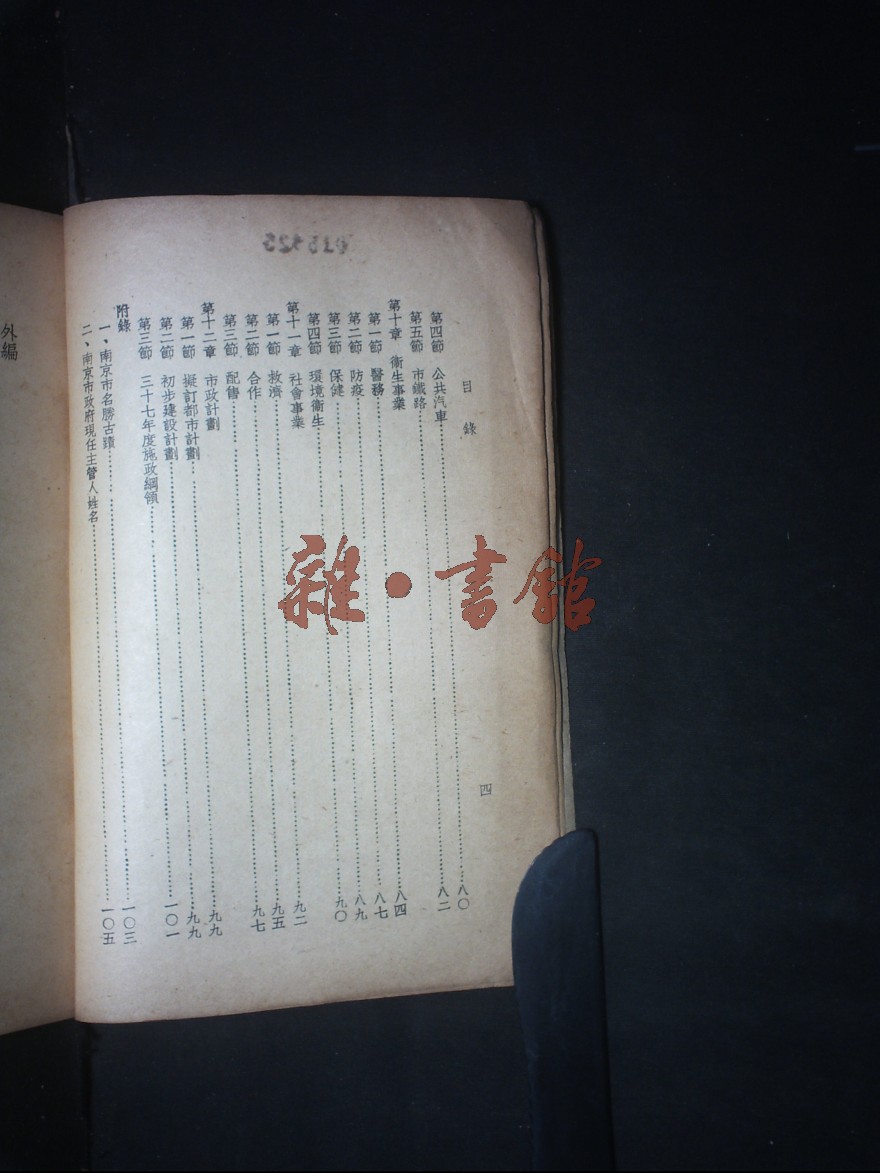 目錄
四
第四節 公共汽車……八〇
第五節 市鐵路……八二
第十章 衛生事業
第一節 醫務……八四
第二節 防疫……八七
第三節 保健……八九
第四節 環境衛生……九〇
第十一章 社會事業
第一節 救濟……九二
第二節 合作……九五
第三節 配售……九七
第十二章 市政計劃
第一節 擬訂都市計劃……九九
第二節 初步建設計劃……九九
第三節 三十七年度施政綱領……一〇一
附錄
一、南京市名勝古蹟……一〇三
二、南京市政府現任主管人姓名……一〇五
外編
雜·書館